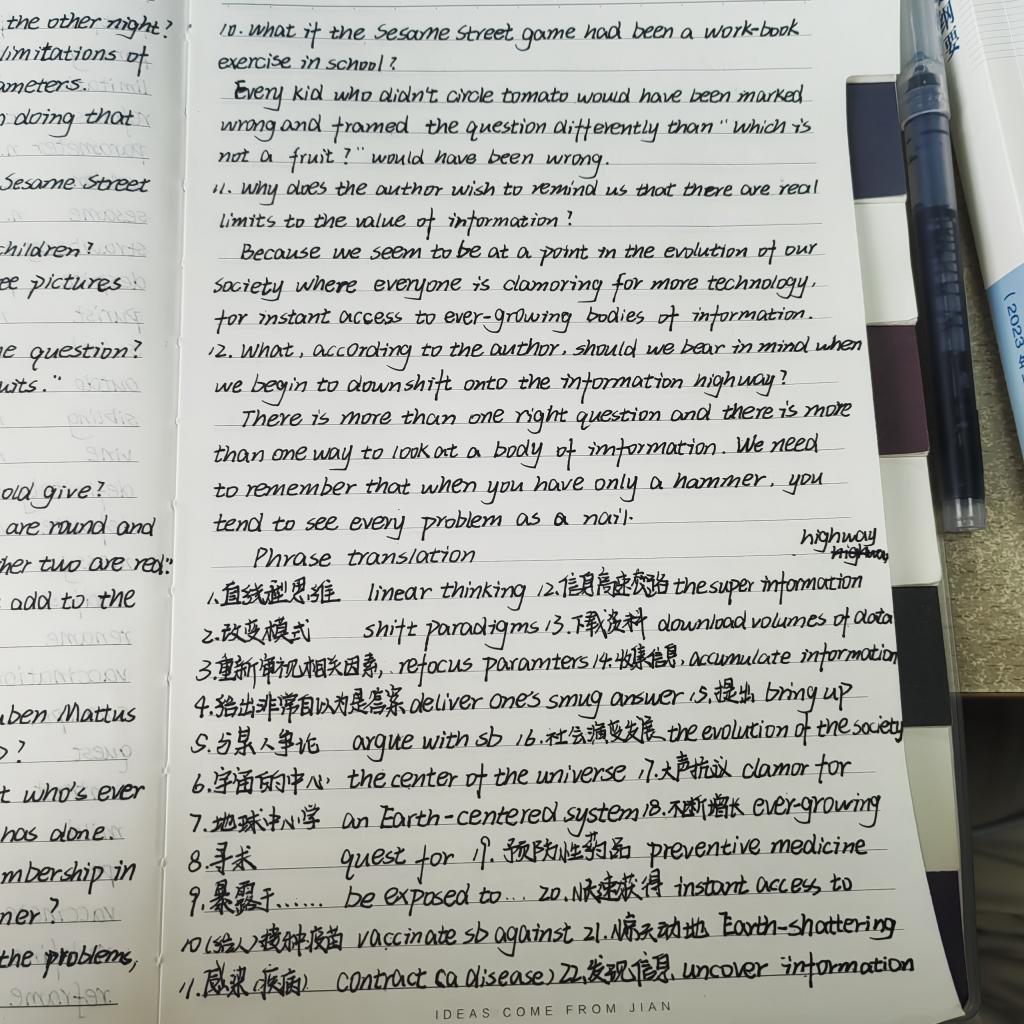 the other night?
limitations of
ameters.
doing that
Sesame Street
children?
ee pictures
e question?
uits."
old give?
are round and
her two are real."
add to the
uben Mattus
?
t who's ever
has done.
mbership in
ner?
the problems,
10. What if the Sesame Street game had been a work-book
exercise in school?
Every kid who didn't circle tomato would have been marked
wrong and framed the question differently than "which is
not a fruit?" would have been wrong.
11. Why does the author wish to remind us that there are real
limits to the value of information?
Because we seem to be at a point in the evolution of our
society where everyone is clamoring for more technology,
for instant access to ever-growing bodies of information.
12. What, according to the author, should we bear in mind when
we begin to downshift onto the information highway?
There is more than one right question and there is more
than one way to look at a body of imformation. We need
to remember that when you have only a hammer, you
tend to see every problem as a nail.
Phrase translation
highway
1.直线型思维 linear thinking 12.信息高速公路 the super information
2.改变模式 shift paradigms 13.下载资料 download volumes of data
3.重新审视相关因素, refocus paramters 14.收集信息, accumulate information
4.给出非常自以为是答案 deliver one's smug answer 15.提出 bring up
5.与某人争论 argue with sb 16.社会演变发展 the evolution of the society
6.宇宙的中心 the center of the universe 17.大声抗议 clamor for
7.地球中心学 an Earth-centered system 18.不断增长 ever-growing
8.寻求 quest for 19.预防性药品 preventive medicine
9.暴露于...... be exposed to... 20.快速获得 instant access to
10(给人)接种疫苗 vaccinate sb against 21.惊天动地 Earth-shattering
11.感染(疾病) contract (a disease) 22.发现信息 uncover information
IDEAS COME FROM JIAN
(2023